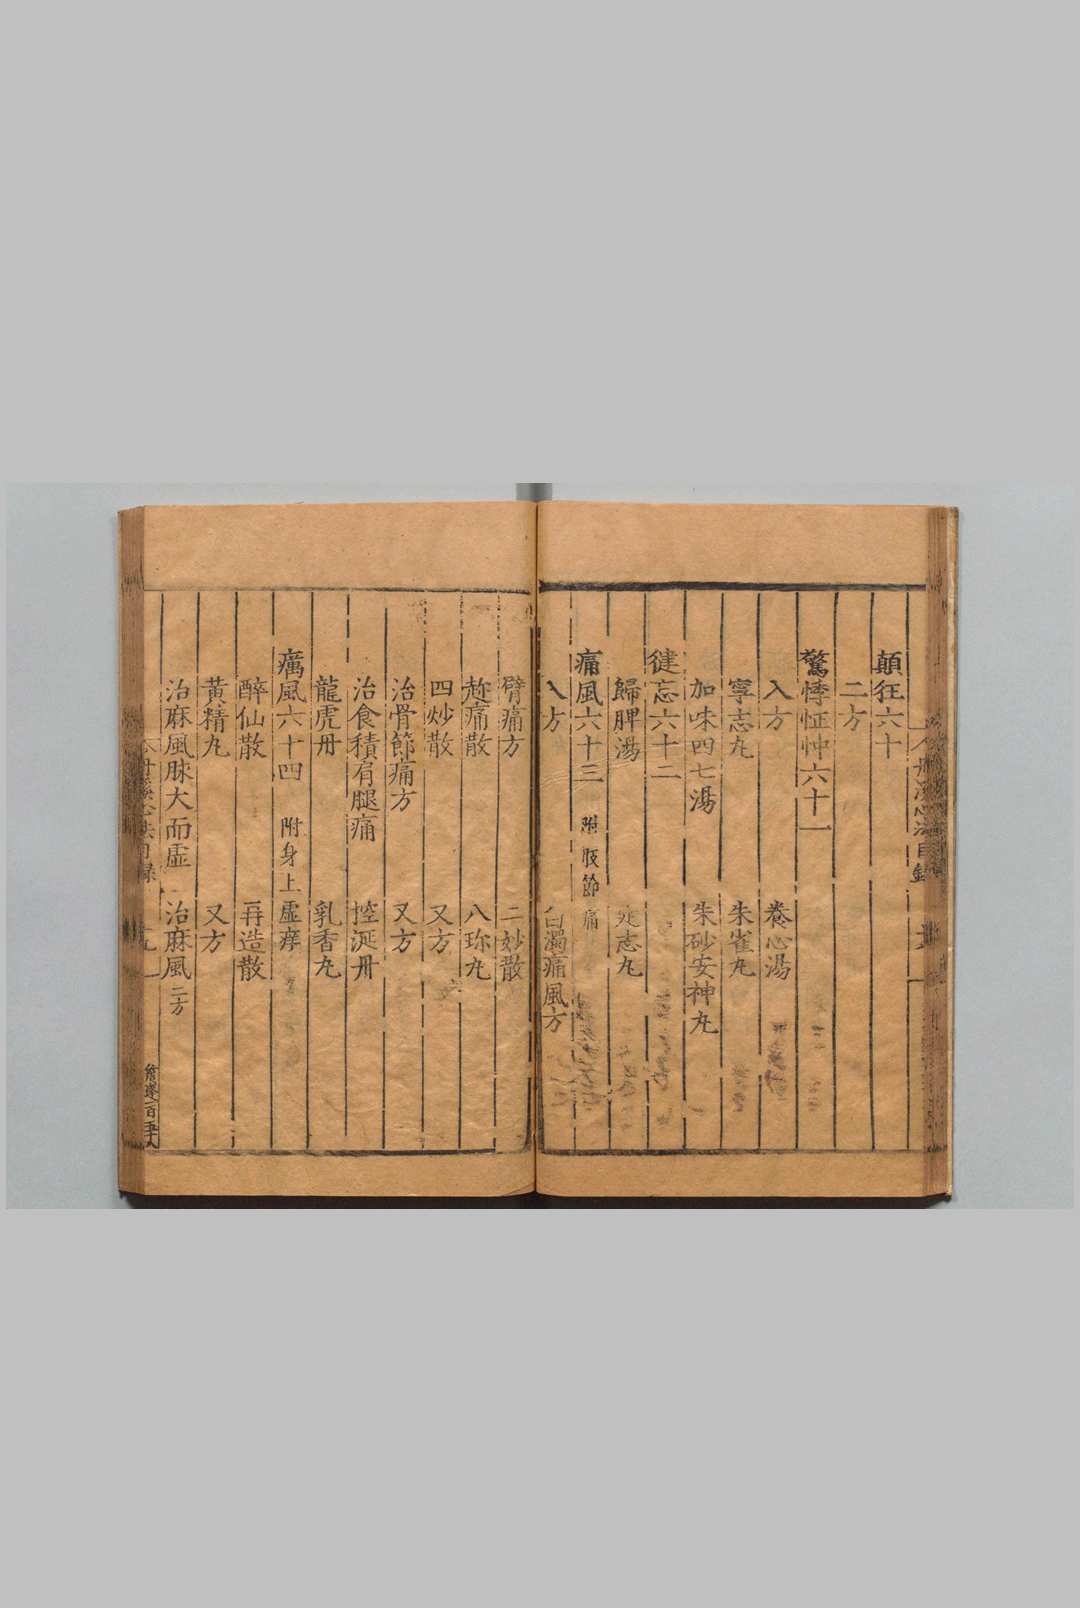 顛狂六十
二方
驚悸怔忡六十一
入方 養心湯
寧志丸 朱雀丸
加味四七湯 朱砂安神丸
健忘六十二
歸脾湯 定志丸
痛風六十三 附肢節痛
入方 白濁痛風方
臂痛方 二妙散
趁痛散 八珎丸
四炒散 又方
治骨節痛方 又方
治食積肩腿痛 控涎丹
龍虎丹 乳香丸
癘風六十四 附身上虛痒
醉仙散 再造散
黃精丸 又方
治麻風脉大而虛 治麻風二方